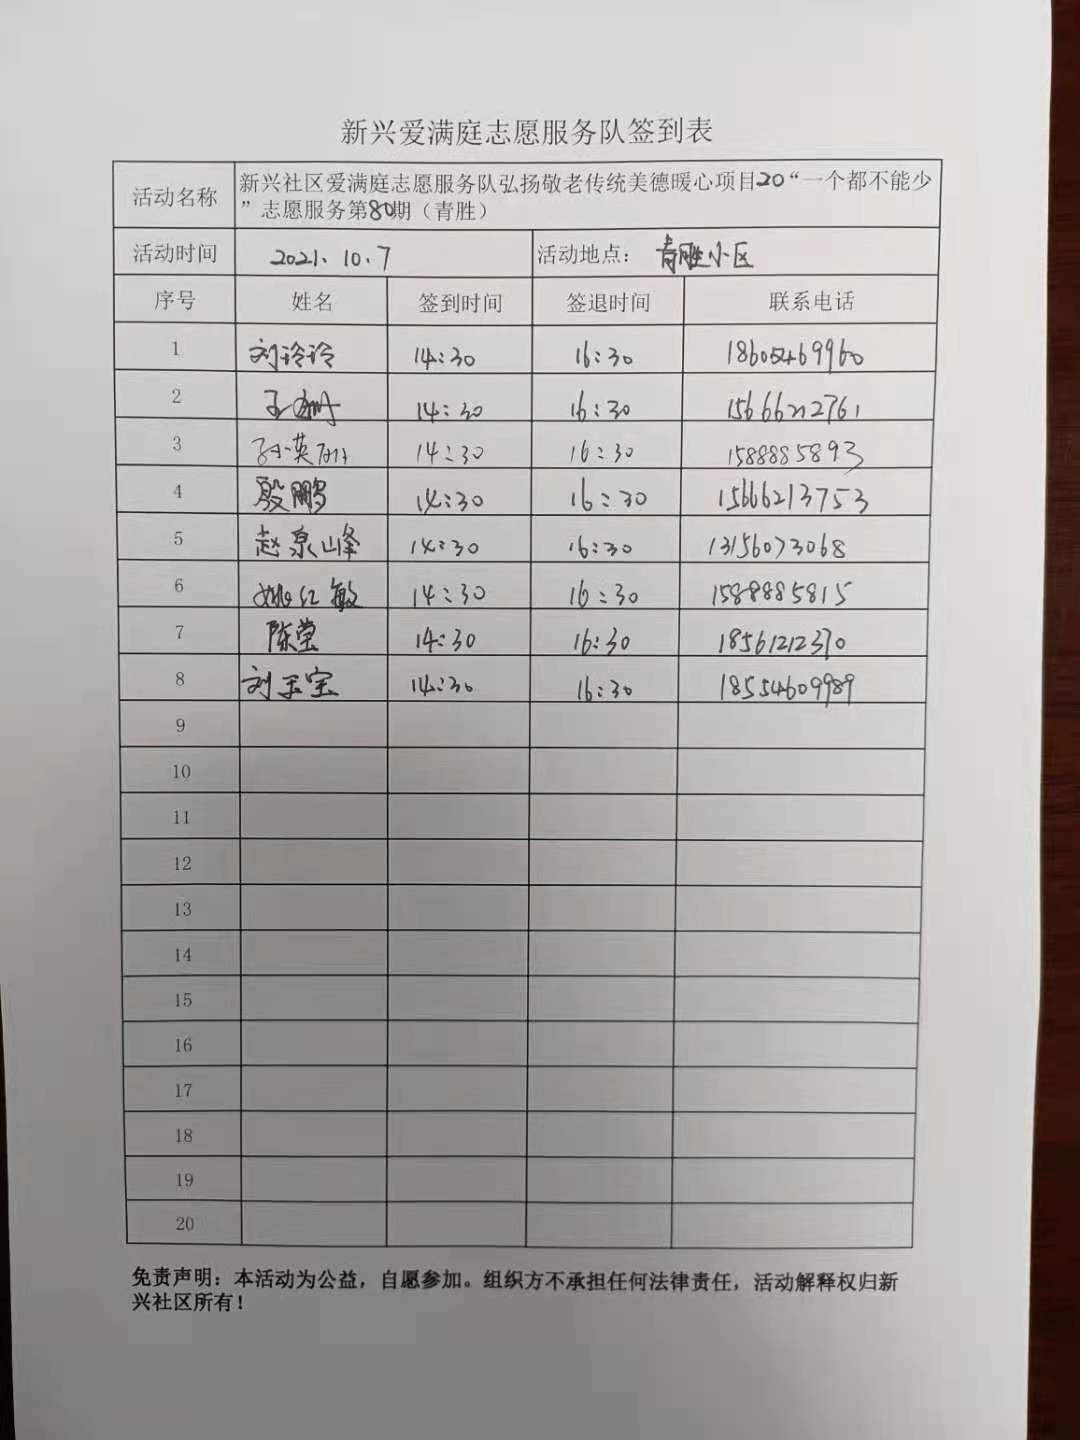 新兴爱满庭志愿服务队签到表
活动名称 新兴社区爱满庭志愿服务队弘扬敬老传统美德暖心项目20“一个都不能少
”志愿服务第80期（青胜）
活动时间 2021.10.7 活动地点： 青胜小区
序号 姓名 签到时间 签退时间 联系电话
1 刘玲玲 14:30 16:30 18605469960
2 王 14:30 16:30 15666212761
3 孙英 14:30 16:30 15888885893
4 殷鹏 14:30 16:30 15666213753
5 赵泉峰 14:30 16:30 13156073068
6 姚红敏 14:30 16:30 15888885815
7 陈莹 14:30 16:30 18561212370
8 刘玉宝 14:30 16:30 18554609989
9
10
11
12
13
14
15
16
17
18
19
20
免责声明：本活动为公益，自愿参加。组织方不承担任何法律责任，活动解释权归新
兴社区所有！